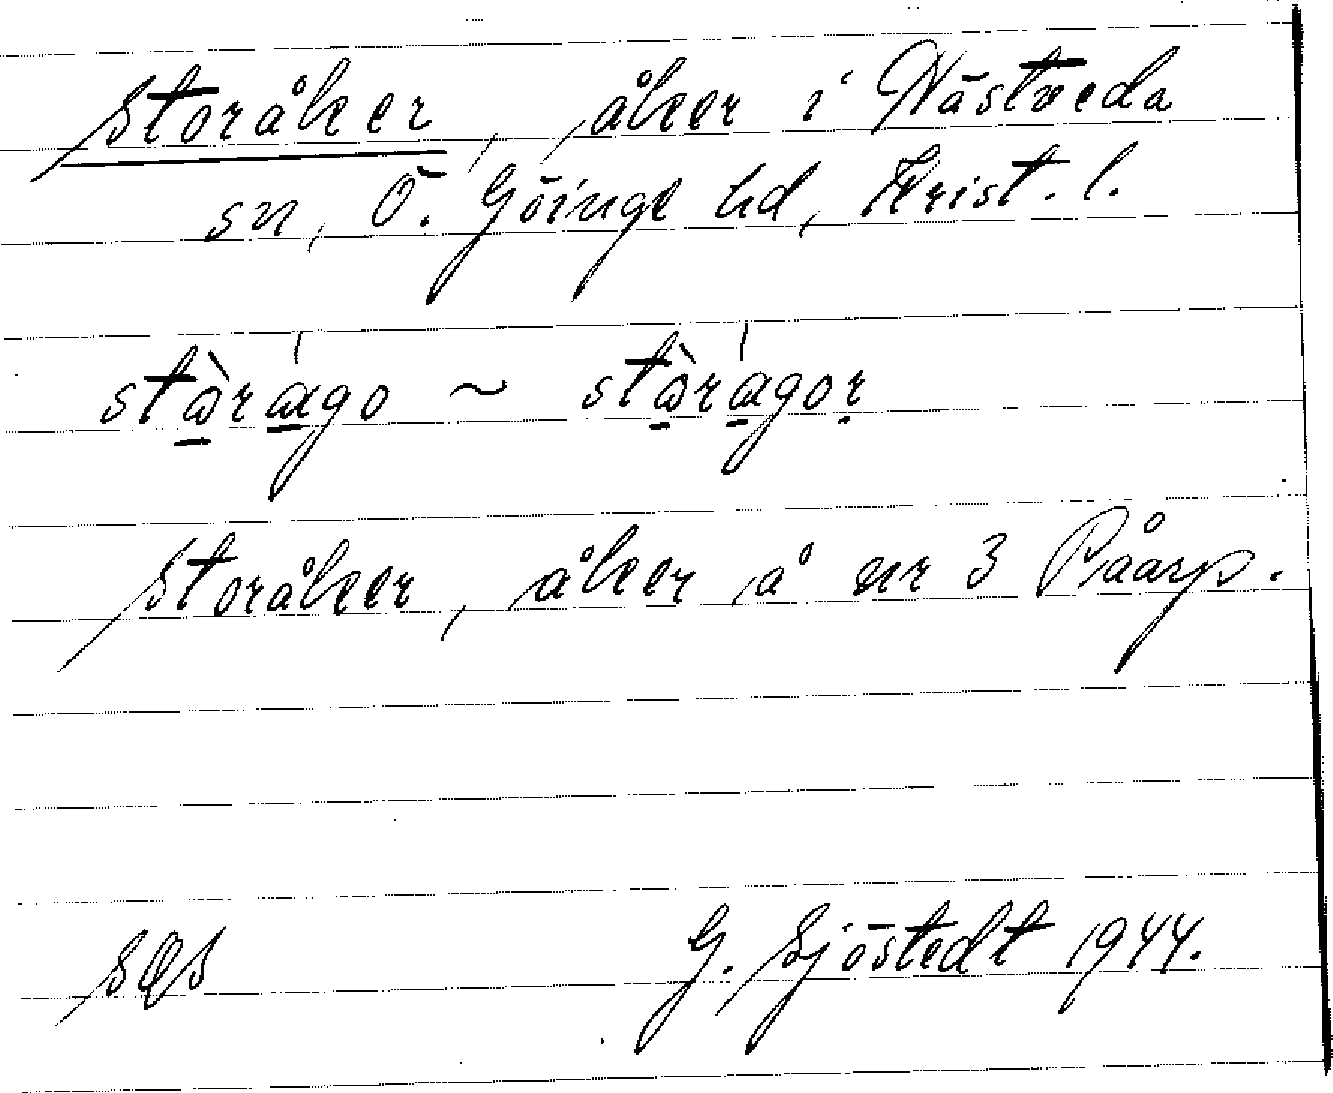 Storåker, åker i Nästveda
sn, Ö. Göinge hd, Krist. l.
stòrágo ~ stòrágor
Storåker, åker å nr 3 Påarp.
SOS G. Sjöstedt 1944.